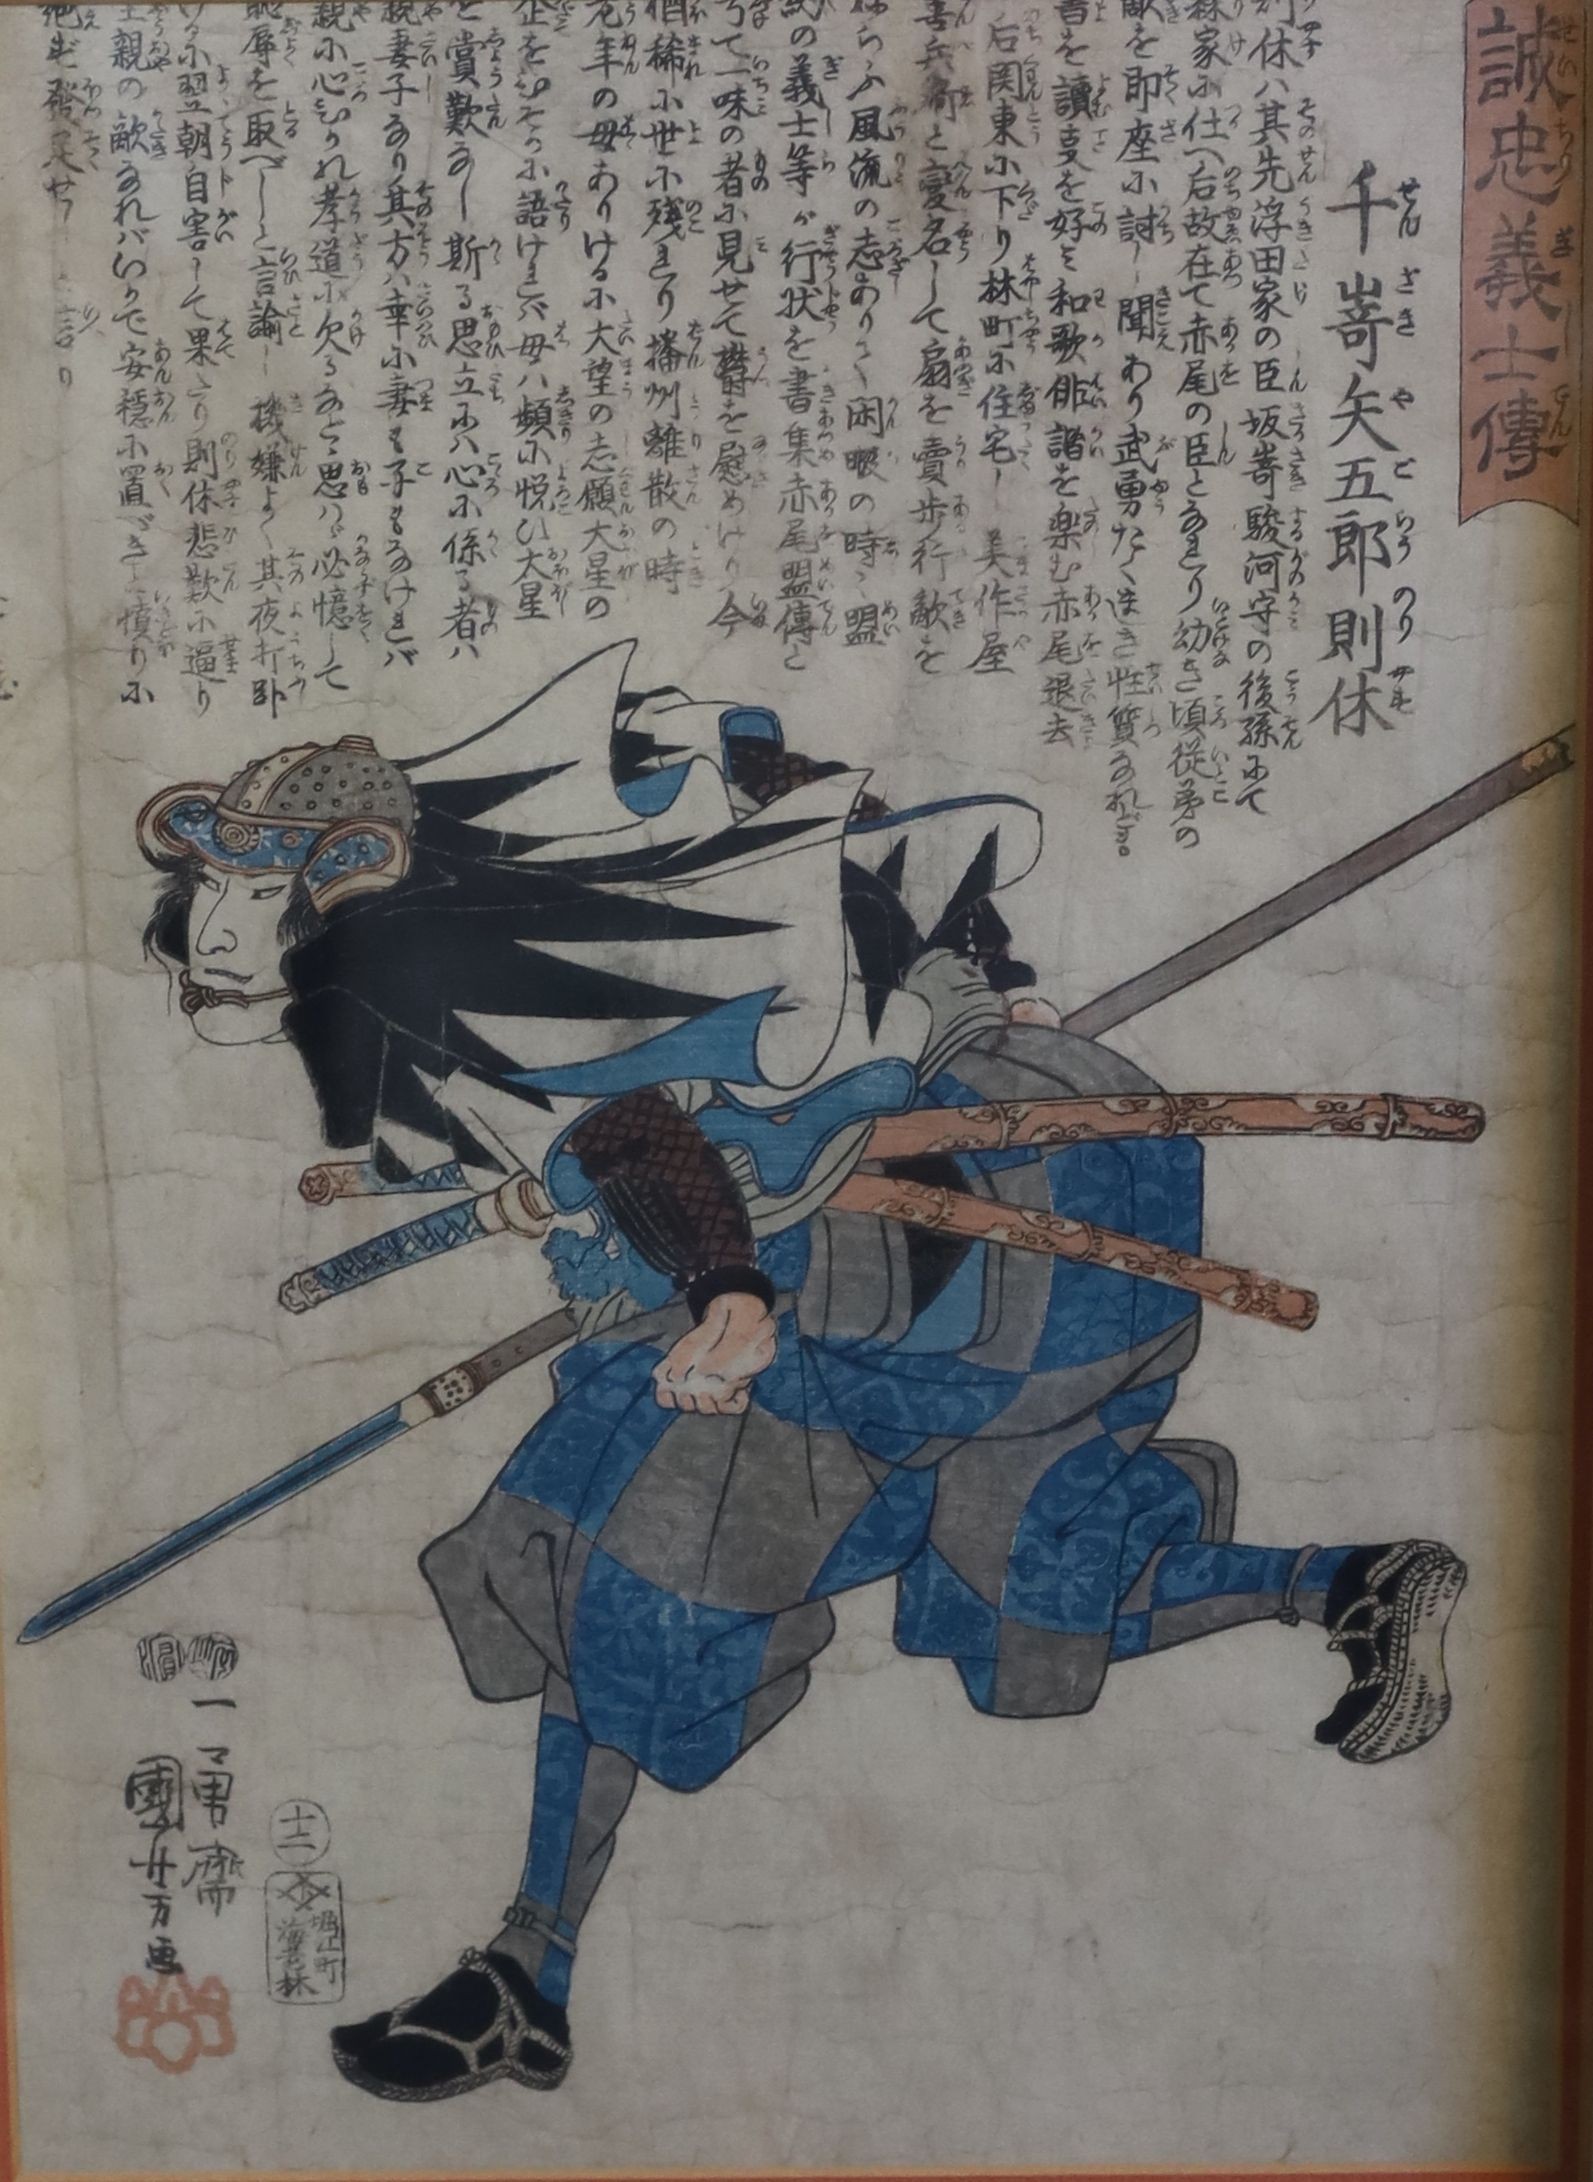 誠忠義士傳
せいちうぎしでん
千嵜矢五郎則休
せんざきやごらうのりやす
則休ハ其先浮田家の臣坂嵜駿河守の後孫にて
森家に仕へ后故在て赤尾の臣となれり幼き頃従弟の
敵を即座に討し聞あり武勇たくましき性質なれど
書を讀事を好み和歌俳諧を楽む赤尾退去
后関東に下り林町に住宅し美作屋
善兵衛と変名して扇を賣歩行敵を
風流の志ありて閑暇の時ハ盟
約の義士等が行状を書集赤尾盟傳と
一味の者に見せて欝を慰めけり今
猶稀に世に残れり播州離散の時
老年の母ありけるに大望の志願大星の
企をひそかに語けれバ母ハ頻に悦び大星
を賞歎なし斯る思立にハ心に係る者ハ
親妻子なり其方ハ幸に妻も子もなけれバ
親に心ひかれ孝道に欠るなど思ハヾ必憶して
恥辱を取べしと言諭し機嫌よく其夜打臥
けるに翌朝自害して果たり則休悲歎に逼り
親の敵なれバいかで安穏に置べきと憤りに
發足せし
一勇齋
國芳画
十二
堀江町
海老林